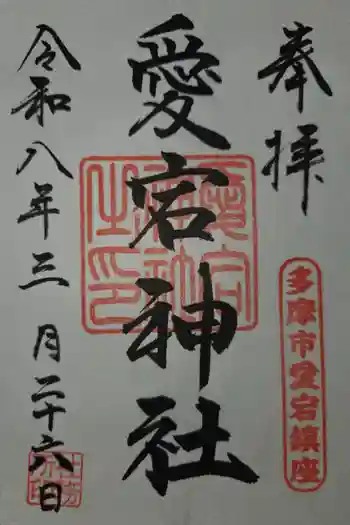 奉拝
多摩市愛宕鎮座
愛宕神社
愛宕神社之印
令和八年三月二十六日